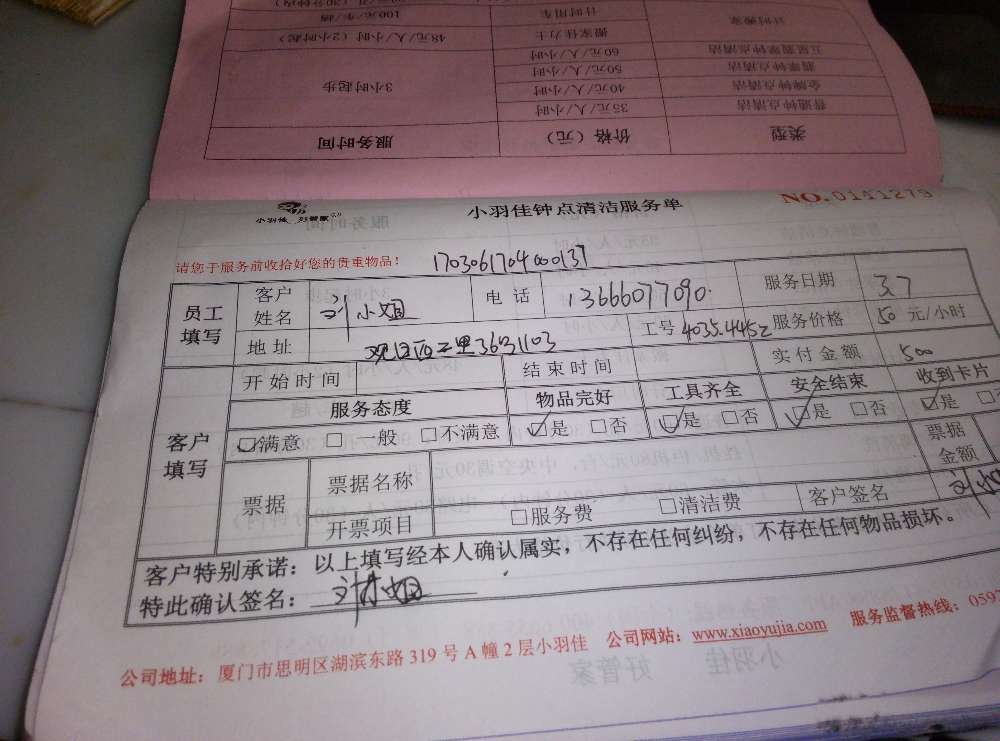 计时搬家 计时用车 100元/车/趟
搬家佳力士 48元/人/小时（2小时起）
五星翡翠钟点清洁 60元/人/小时
翡翠钟点清洁 50元/人/小时 3小时起步
金牌钟点清洁 40元/人/小时
普通钟点清洁 35元/人/小时
类型 价格（元） 服务时间
小羽佳 好管家
小羽佳钟点清洁服务单
NO.0141279
请您于服务前收拾好您的贵重物品！ 170306170400137
员工填写 客户姓名 刘小姐 电话 13666077090 服务日期 3.7
地址 工号 4035.4452 服务价格 50 元/小时
开始时间 结束时间 实付金额 500
客户填写 服务态度 物品完好 工具齐全 安全结束 收到卡片
☑满意 □一般 □不满意 ☑是 □否 ☑是 □否 ☑是 □否 ☑是
票据 票据名称 票据金额
开票项目 □服务费 □清洁费 客户签名 刘小
客户特别承诺：以上填写经本人确认属实，不存在任何纠纷，不存在任何物品损坏。
特此确认签名：刘小姐
公司地址：厦门市思明区湖滨东路319号A幢2层小羽佳 公司网站：www.xiaoyujia.com 服务监督热线：0597
小羽佳 好管家